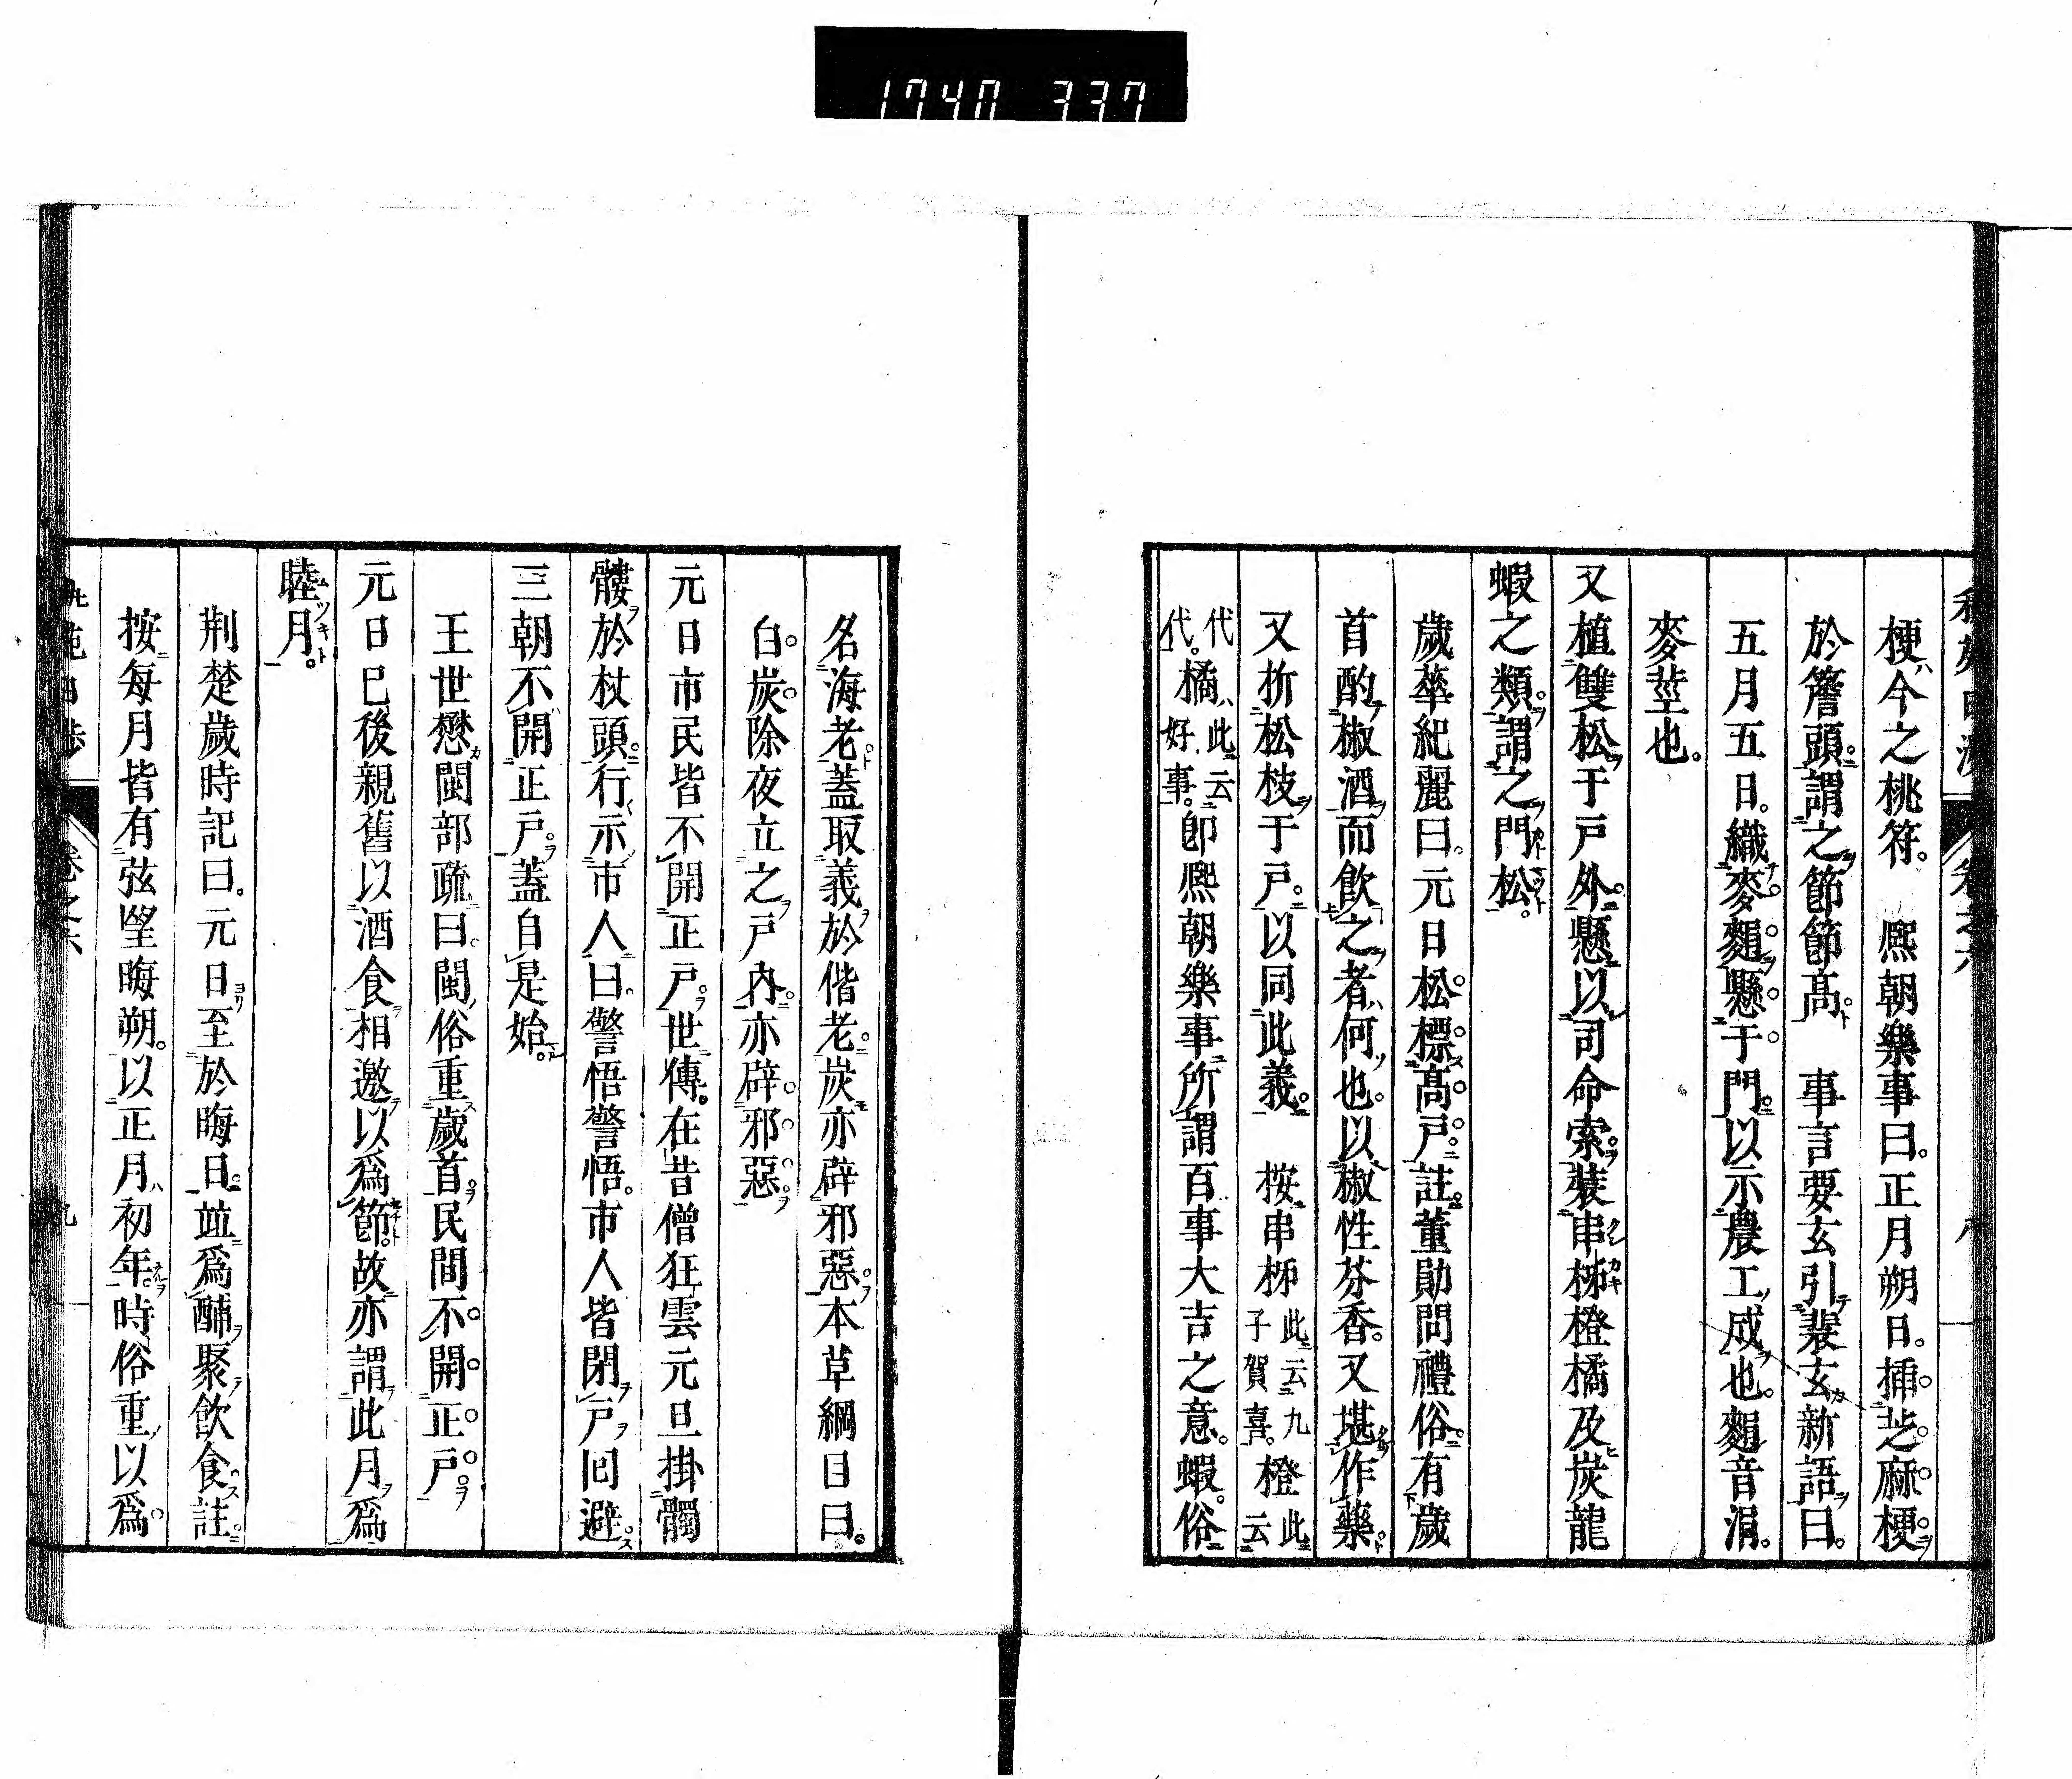 1740 337
梗今之桃符。 熈朝樂事曰。正月朔日。挿芝麻梗
於簷頭。謂之節節髙 事言要玄引裴玄新語曰。
五月五日。織麥䅌懸于門。以示農工成也。䅌音涓。
麥莖也。
又植雙松于戸外。懸以司命索。裝串柹橙橘及炭龍
蝦之類。謂之門松。
歲華紀麗曰。元日松標髙戸。註董勛問禮俗。有歲
首酌椒酒而飲之者何也。以椒性芬香。又堪作藥。
又折松枝于戸。以同此義。 按串柹此云九子賀喜。橙此云
代代。橘此云好事。卽熈朝樂事所謂百事大吉之意。蝦俗
名海老。蓋取義於偕老。炭亦辟邪惡。本草綱目曰。
白炭除夜立之戸內。亦辟邪惡。
元日市民皆不開正戸。世傳。在昔僧狂雲元旦掛髑
髏於杖頭。行示市人曰。警悟警悟。市人皆閉戸囘避
三朝不開正戸。蓋自是始。
王世懋閩部疏曰。閩俗重歲首。民間不開正戸。
元日已後親舊以酒食相邀以爲節。故亦謂此月爲
睦月。
荆楚歲時記曰。元日至於晦日。竝爲酺聚飲食。註
按每月皆有弦望晦朔。以正月初年。時俗重以爲。
卷之六
九